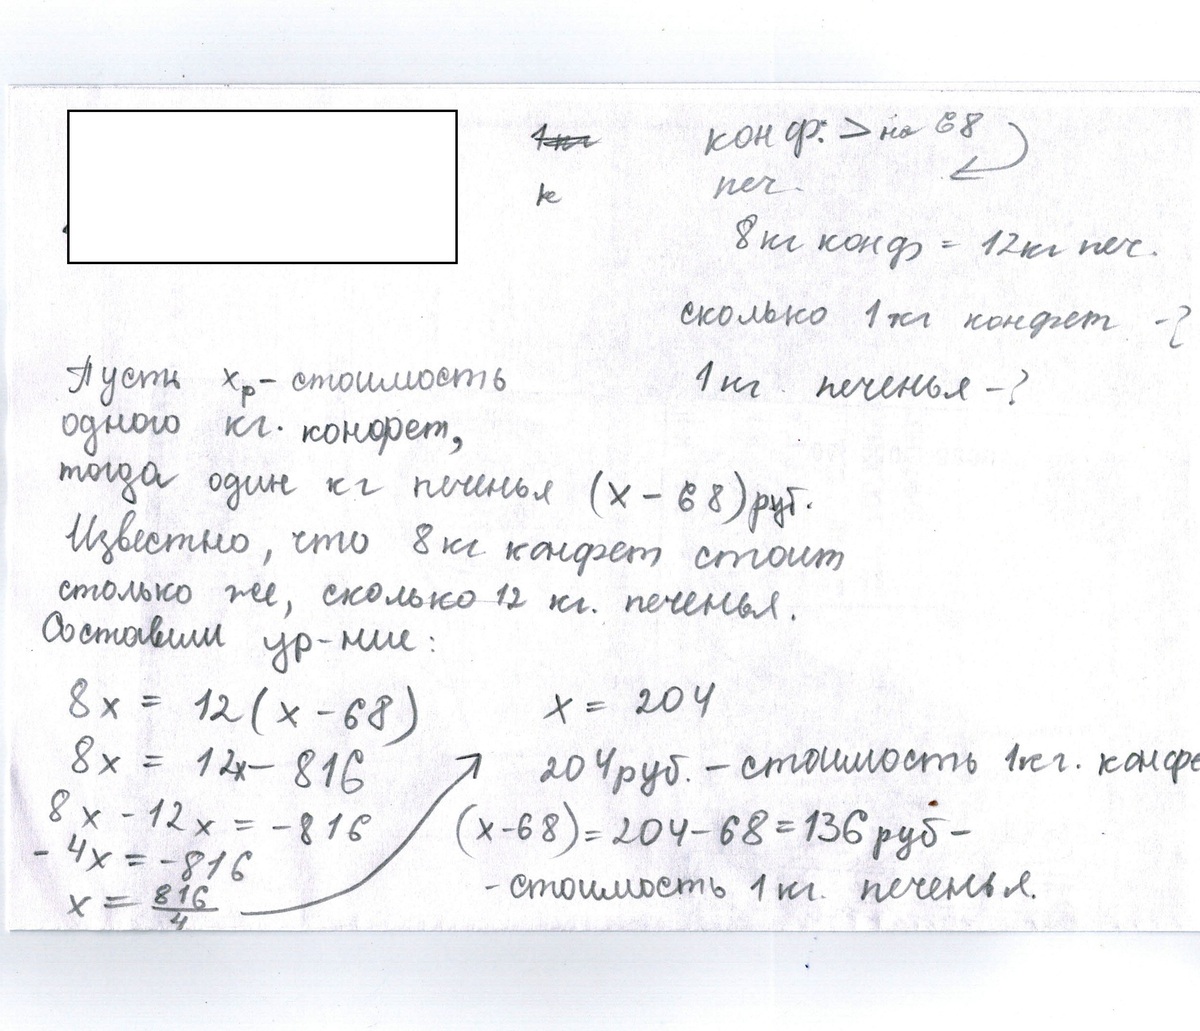 конф. > на 68
печ.
8кг конф = 12кг печ.
сколько 1кг конфет -?
1кг. печенья -?
Пусть xр - стоимость
одного кг. конфет,
тогда один кг печенья (x - 68) руб.
Известно, что 8кг конфет стоит
столько же, сколько 12 кг. печенья.
Составим ур-ние:
8x = 12(x - 68)
8x = 12x - 816
8x - 12x = -816
- 4x = -816
x = 816/4
x = 204
204руб. - стоимость 1кг. конфе
(x-68) = 204-68 = 136руб -
- стоимость 1кг. печенья.